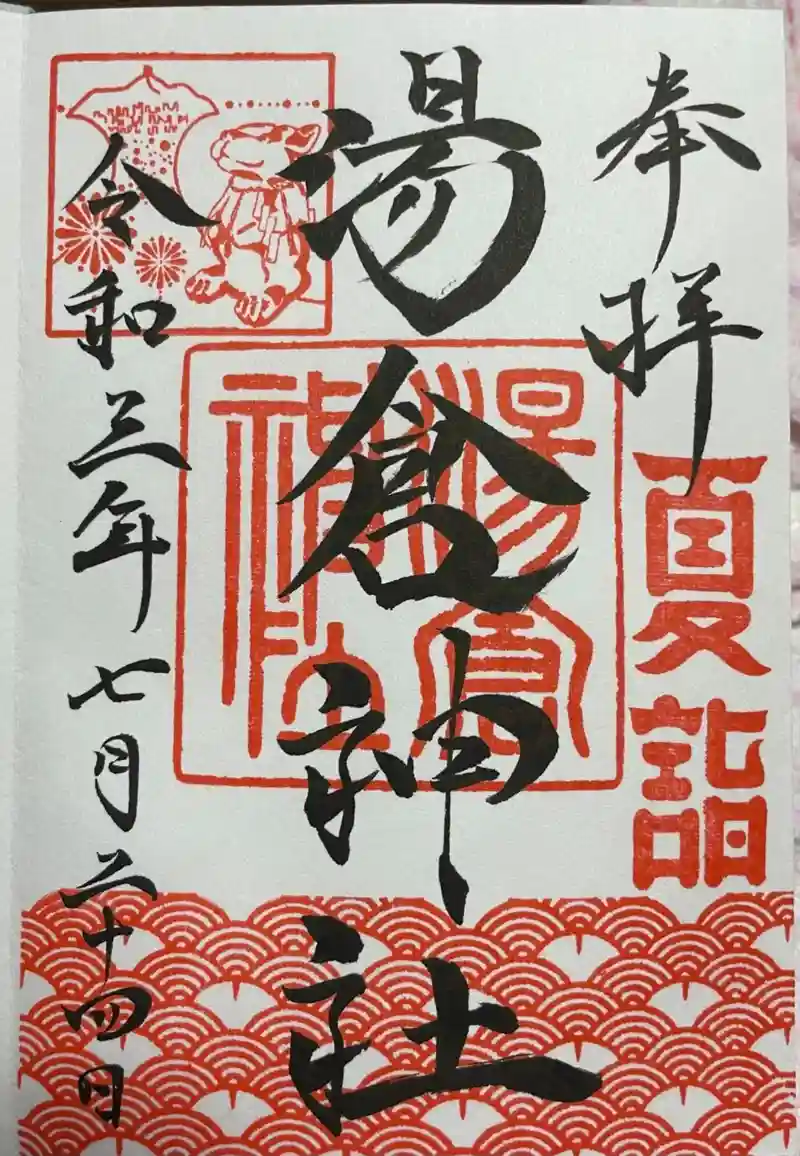 奉拝
夏詣
湯倉神社
湯倉神社
令和三年七月二十四日